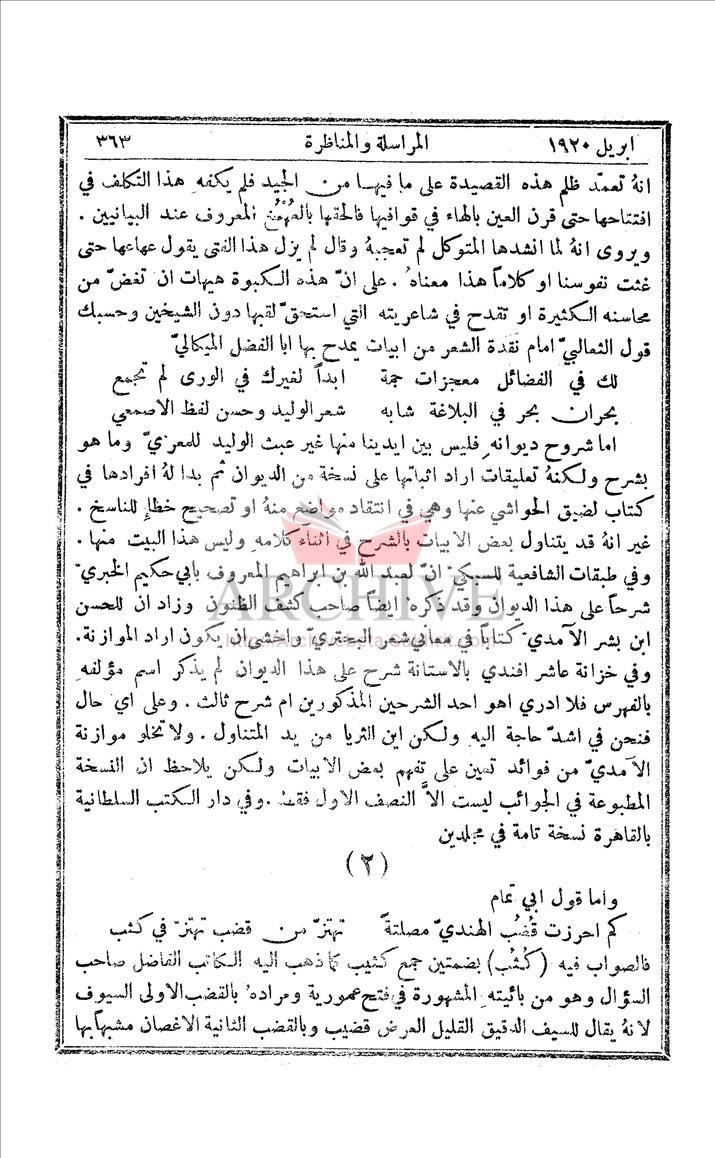 ابريل ١٩٢٠ المراسلة والمناظرة ٣٦٣
انهُ تعمّد ظلم هذه القصيدة على ما فيها من الجيد فلم يكفهِ هذا التكلف في
افتتاحها حتى قرن العين بالهاء في قوافيها فالحقها بالهُعْخُع المعروف عند البيانيين .
ويروى انهُ لما انشدها المتوكل لم تعجبهُ وقال لم يزل هذا الفتى يقول عهاعها حتى
غثت نفوسنا او كلاماً هذا معناهُ . على انّ هذه الكبوة هيهات ان تغضّ من
محاسنه الكثيرة او تقدح في شاعريته التي استحقّ لقبها دون الشيخين وحسبك
قول الثعالبيّ امام نقَدة الشعر من ابيات يمدح بها ابا الفضل الميكاليّ
لك في الفضائل معجزات جمة ابداً لغيرك في الورى لم تجمع
بحران بحر في البلاغة شابه شعر الوليد وحسن لفظ الاصمعي
اما شروح ديوانهِ فليس بين ايدينا منها غير عبث الوليد للمعرّيّ وما هو
بشرح ولكنهُ تعليقات اراد اثباتها على نسخة من الديوان ثم بدا لهُ افرادها في
كتاب لضيق الحواشي عنها وهي في انتقاد مواضع منهُ او تصحيح خطإٍ للناسخ .
غير انهُ قد يتناول بعض الابيات بالشرح في اثناء كلامهِ وليس هذا البيت منها .
وفي طبقات الشافعية للسبكيّ انّ لعبد الله بن ابراهيم المعروف بأبي حكيم الخبريّ
شرحاً على هذا الديوان وقد ذكرهُ ايضاً صاحب كشف الظنون وزاد ان للحسن
ابن بشر الآمديّ كتاباً في معاني شعر البحتريّ واخشى ان يكون اراد الموازنة.
وفي خزانة عاشر افندي بالاستانة شرح على هذا الديوان لم يذكر اسم مؤلفهِ
بالفهرس فلا ادري اهو احد الشرحين المذكورين ام شرح ثالث . وعلى اي حال
فنحن في اشدّ حاجة اليهِ ولكن اين الثريا من يد المتناول . ولا تخلو موازنة
الآمديّ من فوائد تعين على تفهم بعض الابيات ولكن يلاحظ ان النسخة
المطبوعة في الجوائب ليست الاَّ النصف الاول فقط . وفي دار الكتب السلطانية
بالقاهرة نسخة تامة في مجلدين
( ٢ )
واما قول ابي تمام
كم احرزت قُضُب الهنديّ مصلتةً تهتزّ من قضب تهتزّ في كثب
فالصواب فيه ( كُثُب ) بضمتين جمع كثيب كما ذهب اليه الكاتب الفاضل صاحب
السؤال وهو من بائيتهِ المشهورة في فتح عمورية ومرادهُ بالقضب الاولى السيوف
لانهُ يقال للسيف الدقيق القليل العرض قضيب وبالقضب الثانية الاغصان مشبهاً بها
ARCHIVE